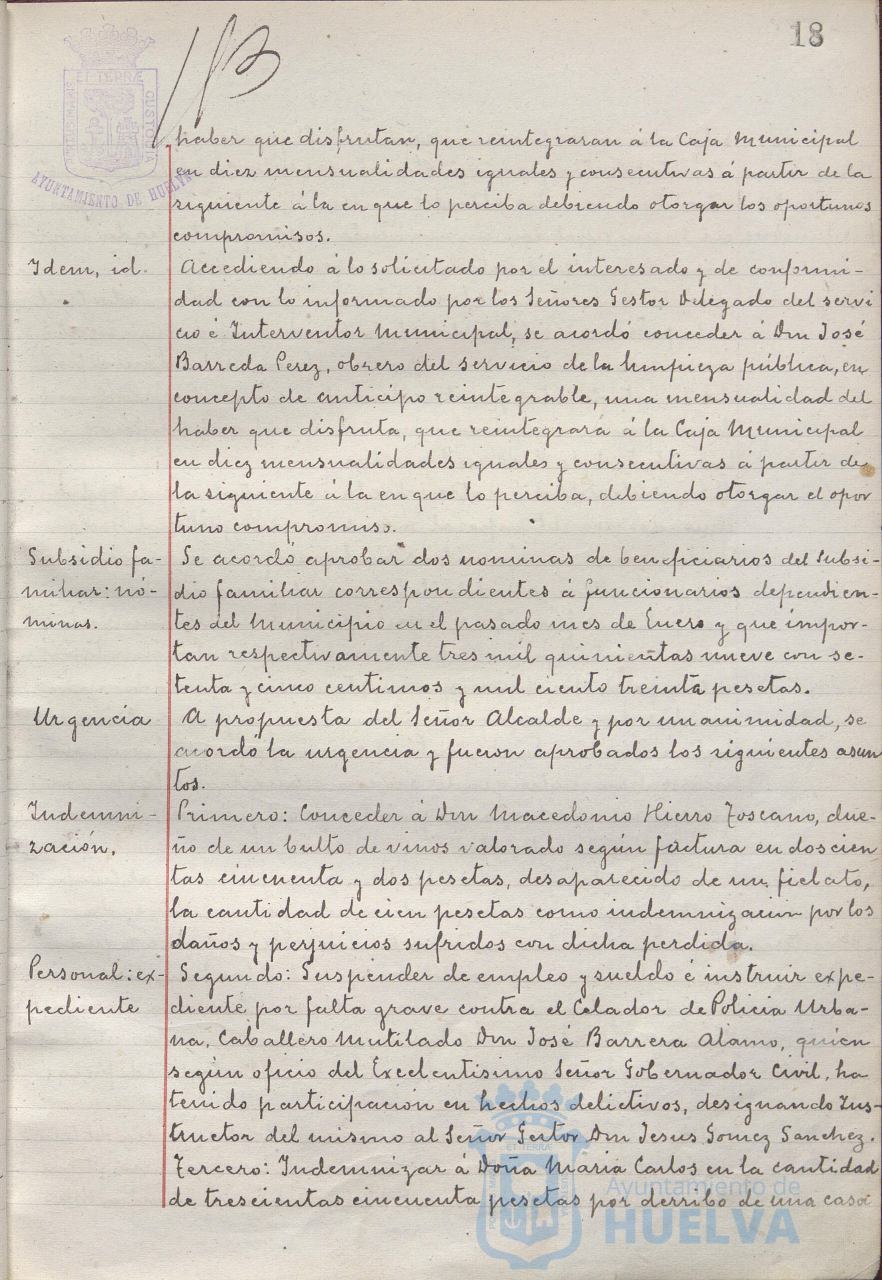 18
haber que disfrutan, que reintegraran á la Caja Municipal
en diez mensualidades iguales y consecutivas á partir de la
siguiente á la en que lo perciba debiendo otorgar los oportunos
compromisos.
Idem, id. Accediendo á lo solicitado por el interesado y de conformi-
dad con lo informado por los Señores Gestor Delegado del servi
cio é Interventor Municipal, se acordó conceder á Don José
Barreda Perez, obrero del servicio de la limpieza pública, en
concepto de anticipo reintegrable, una mensualidad del
haber que disfruta, que reintegrará á la Caja Municipal
en diez mensualidades iguales y consecutivas á partir de
la siguiente á la en que lo perciba, debiendo otorgar el opor
tuno compromiso.
Subsidio fa- Se acordó aprobar dos nominas de beneficiarios del Subsi-
miliar: nó- dio familiar correspondientes á funcionarios dependien-
minas. tes del Municipio en el pasado mes de Enero y que impor-
tan respectivamente tres mil quinientas nueve con se-
tenta y cinco centimos y mil ciento treinta pesetas.
Urgencia A propuesta del Señor Alcalde y por unanimidad, se
acordó la urgencia y fueron aprobados los siguientes asun
tos.
Indemni- Primero: Conceder á Don Macedonio Hierro Toscano, due-
zación. ño de un bulto de vinos valorado según factura en doscien
tas cincuenta y dos pesetas, desaparecido de un fielato,
la cantidad de cien pesetas como indemnizacion por los
daños y perjuicios sufridos con dicha perdida.
Personal: ex- Segundo: Suspender de empleo y sueldo é instruir expe-
pediente diente por falta grave contra el Celador de Policia Urba-
na, Caballero Mutilado Don José Barrera Alamo, quien
según oficio del Excelentisimo Señor Gobernador Civil, ha
tenido participación en hechos delictivos, designando Ins-
tructor del mismo al Señor Gestor Don Jesus Gomez Sanchez.
Tercero: Indemnizar á Doña Maria Carlos en la cantidad
de trescientas cincuenta pesetas por derribo de una casa
AYUNTAMIENTO DE HUELVA
ET TERRÆ
CUSTODIA
Ayuntamiento de
HUELVA